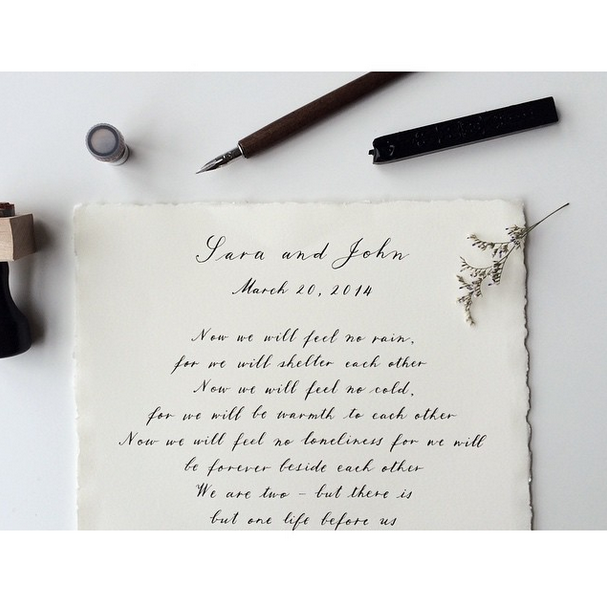 Sara and John
March 20, 2014
Now we will feel no rain,
for we will shelter each other
Now we will feel no cold,
for we will be warmth to each other
Now we will feel no loneliness for we will
be forever beside each other
We are two – but there is
but one life before us